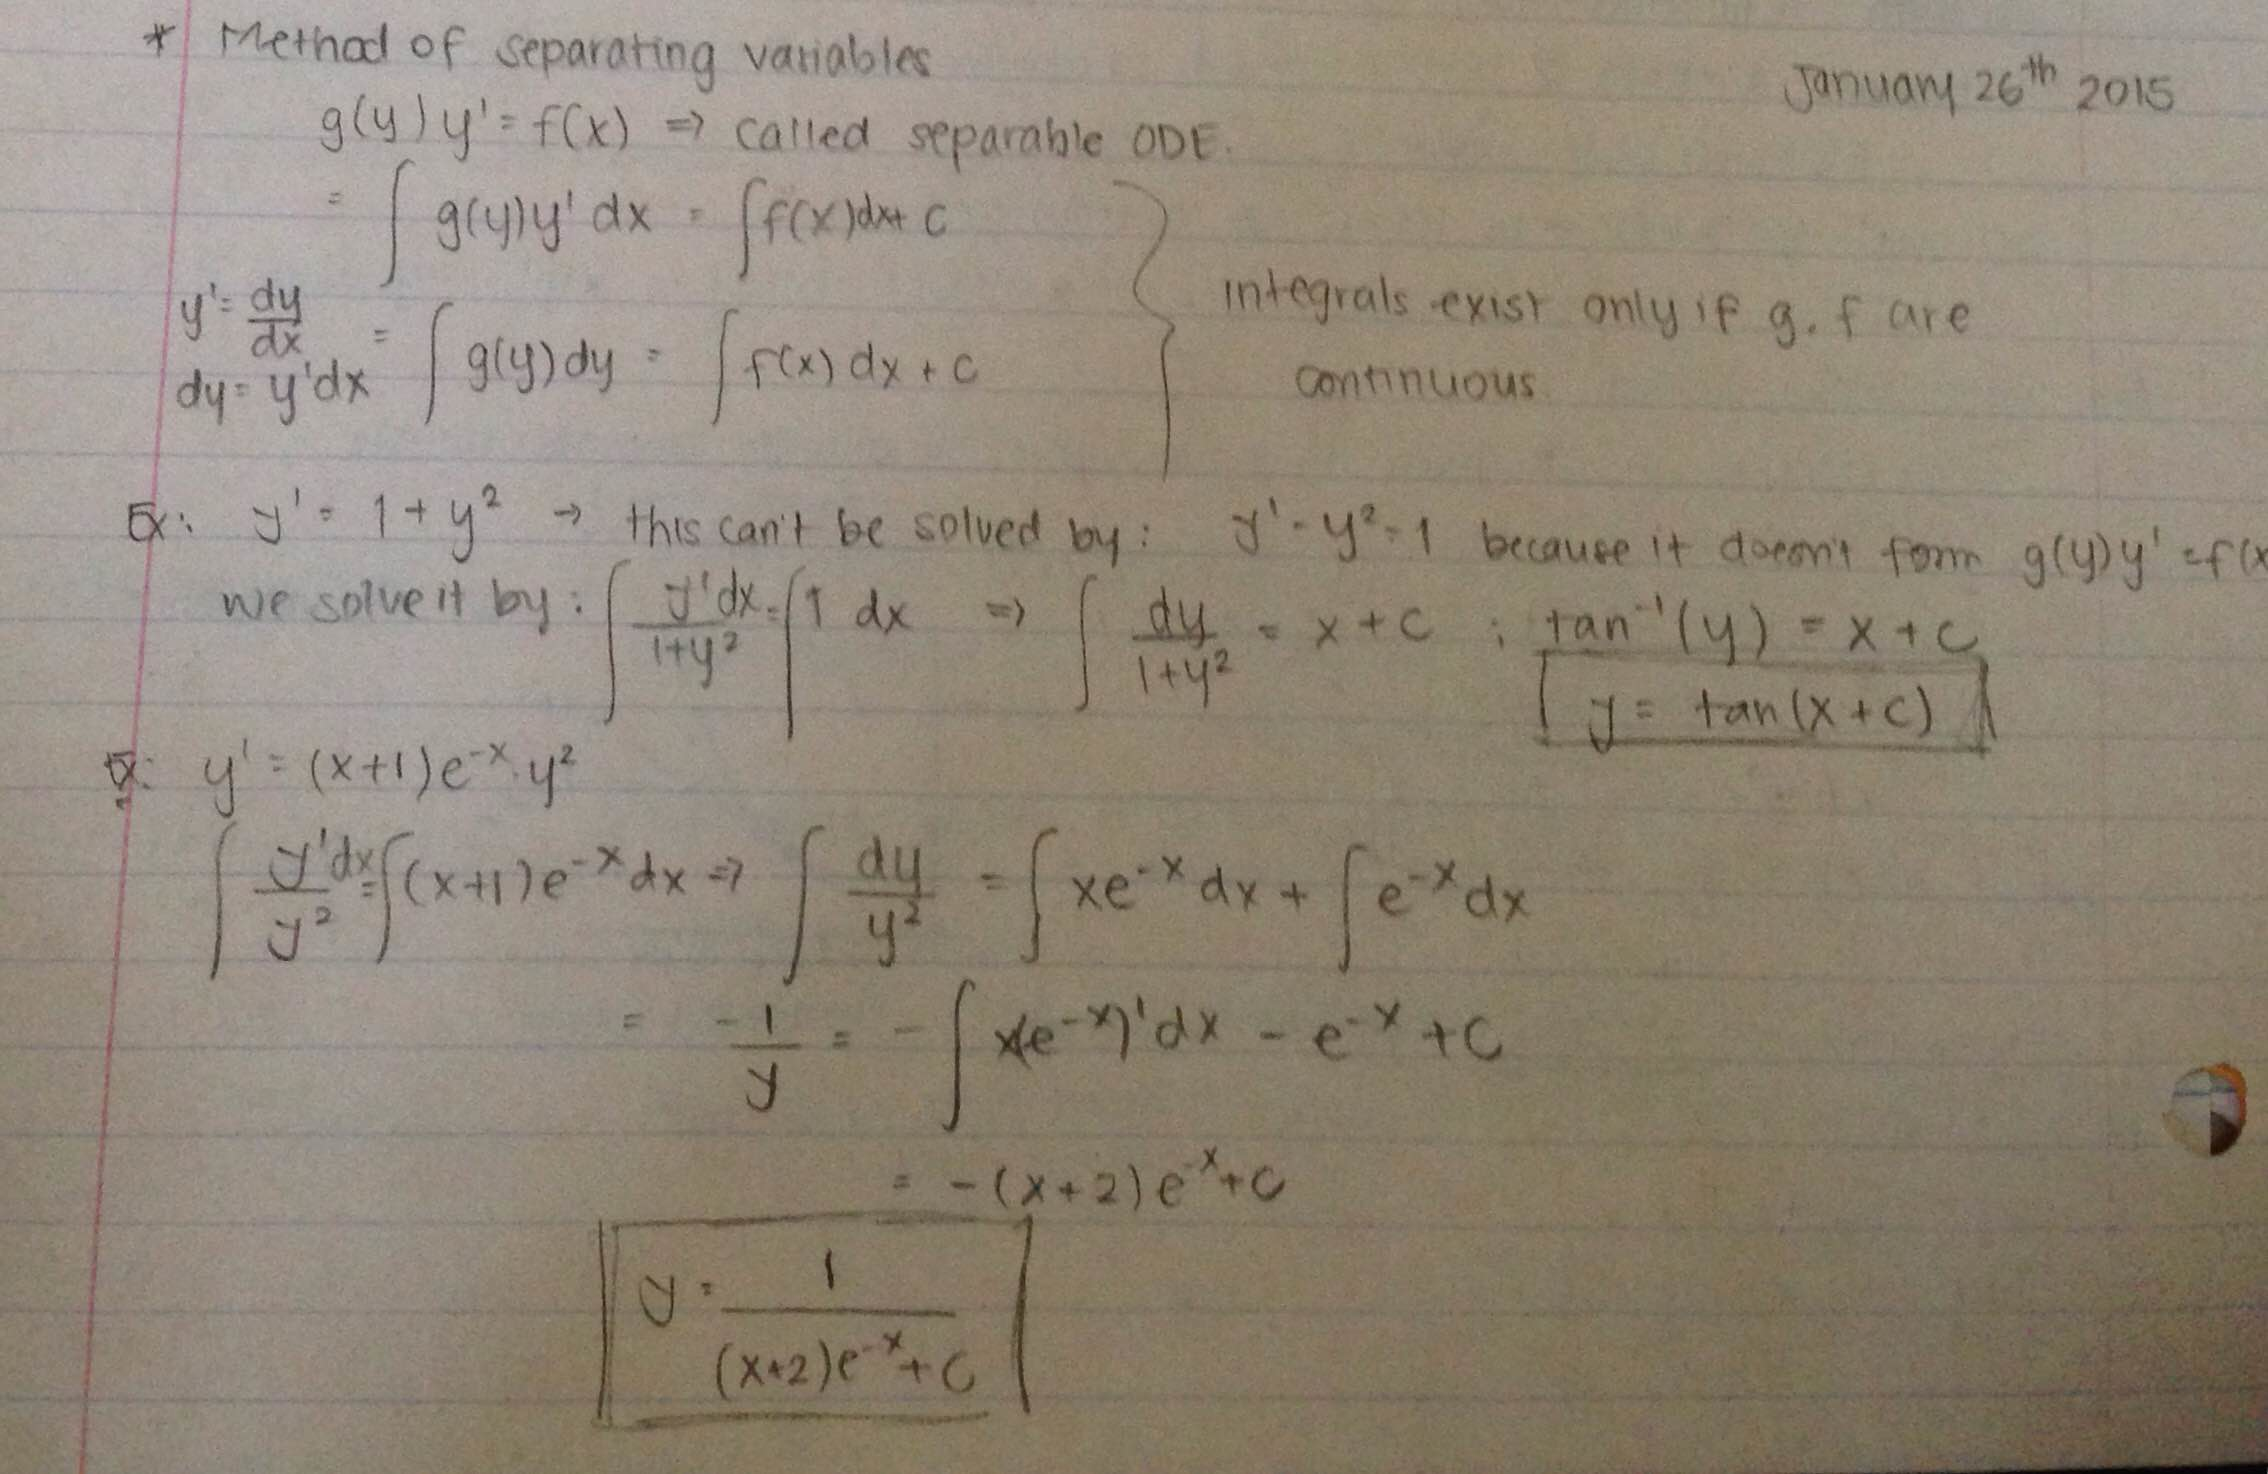 * Method of separating variables
January 26th 2015
g(y)y' = f(x) => called separable ODE.
= ∫ g(y)y' dx = ∫f(x)dx + C
y' = dy/dx
dy = y'dx
= ∫ g(y)dy = ∫ f(x) dx + C
integrals exist only if g. f are
continuous
Ex: y' = 1 + y² → this can't be solved by: y' - y² = 1 because it doesn't form g(y)y' = f(x
we solve it by: ∫ y'dx/1+y² = ∫1 dx => ∫ dy/1+y² = x + C ; tan⁻¹(y) = x + C
y = tan(x + C)
Ex: y' = (x+1)e⁻ˣ·y²
∫ y'dx/y² = ∫(x+1)e⁻ˣdx => ∫ dy/y² = ∫ xe⁻ˣdx + ∫e⁻ˣdx
= -1/y = -∫x(e⁻ˣ)'dx - e⁻ˣ + C
= -(x+2)e⁻ˣ + C
y = 1/(x+2)e⁻ˣ + C